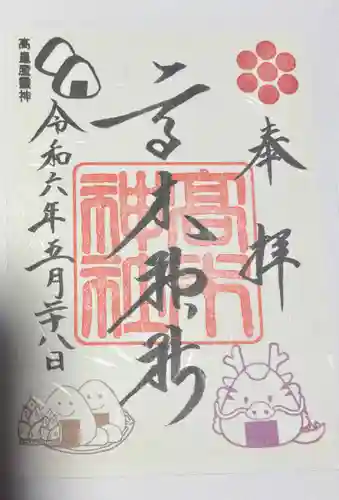 奉拝
高木神社
高木神社
高皇産靈神
令和六年五月二十八日